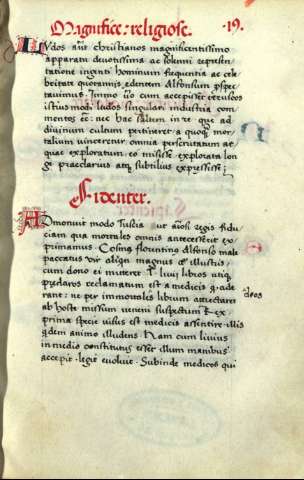 Magnifice: religiose.
·19·
LVdos aut̄ christianos magnificentissimo
apparatu deuotissima ac solemni represen
tatione ingenti hominum frequentia ac cele
britate quotannis edentem Alfonsum perspe
ctauimus. Immo v̄o cum accepisset etruscos
istiusmodi ludos singulari industria com
mentos eē: nec hac saltem in re que ad
diuinum cultum pertineret a quoq̃ mor
talium vinceretur omnia perscrutatum at
que exploratum eo misisse explorata lon
ge praeclarius atq̃ subtilius expressisse;
Fidenter.
ADmonuit modo Tuscia ut alfonsi regis fidu
ciam qua mortales omnis antecesserit ex
primamus. Cosmus florentinus Alfonso male
paccatus vir alioqui magnus et illustris
cum dono ei mitteret T. liuij libros utiq̃
preclaros reclamatum est a medicis q̃ ade
rant: ne per immortales librum attrectaret deos
ab hoste missum veneni suspectum Rex
prima specie visus est medicis assentire illis
q̃dem animo illudens. Nam cum liuius
in medio constitutus esset illum manibus
accepit legit euoluit. Subinde medicos qui